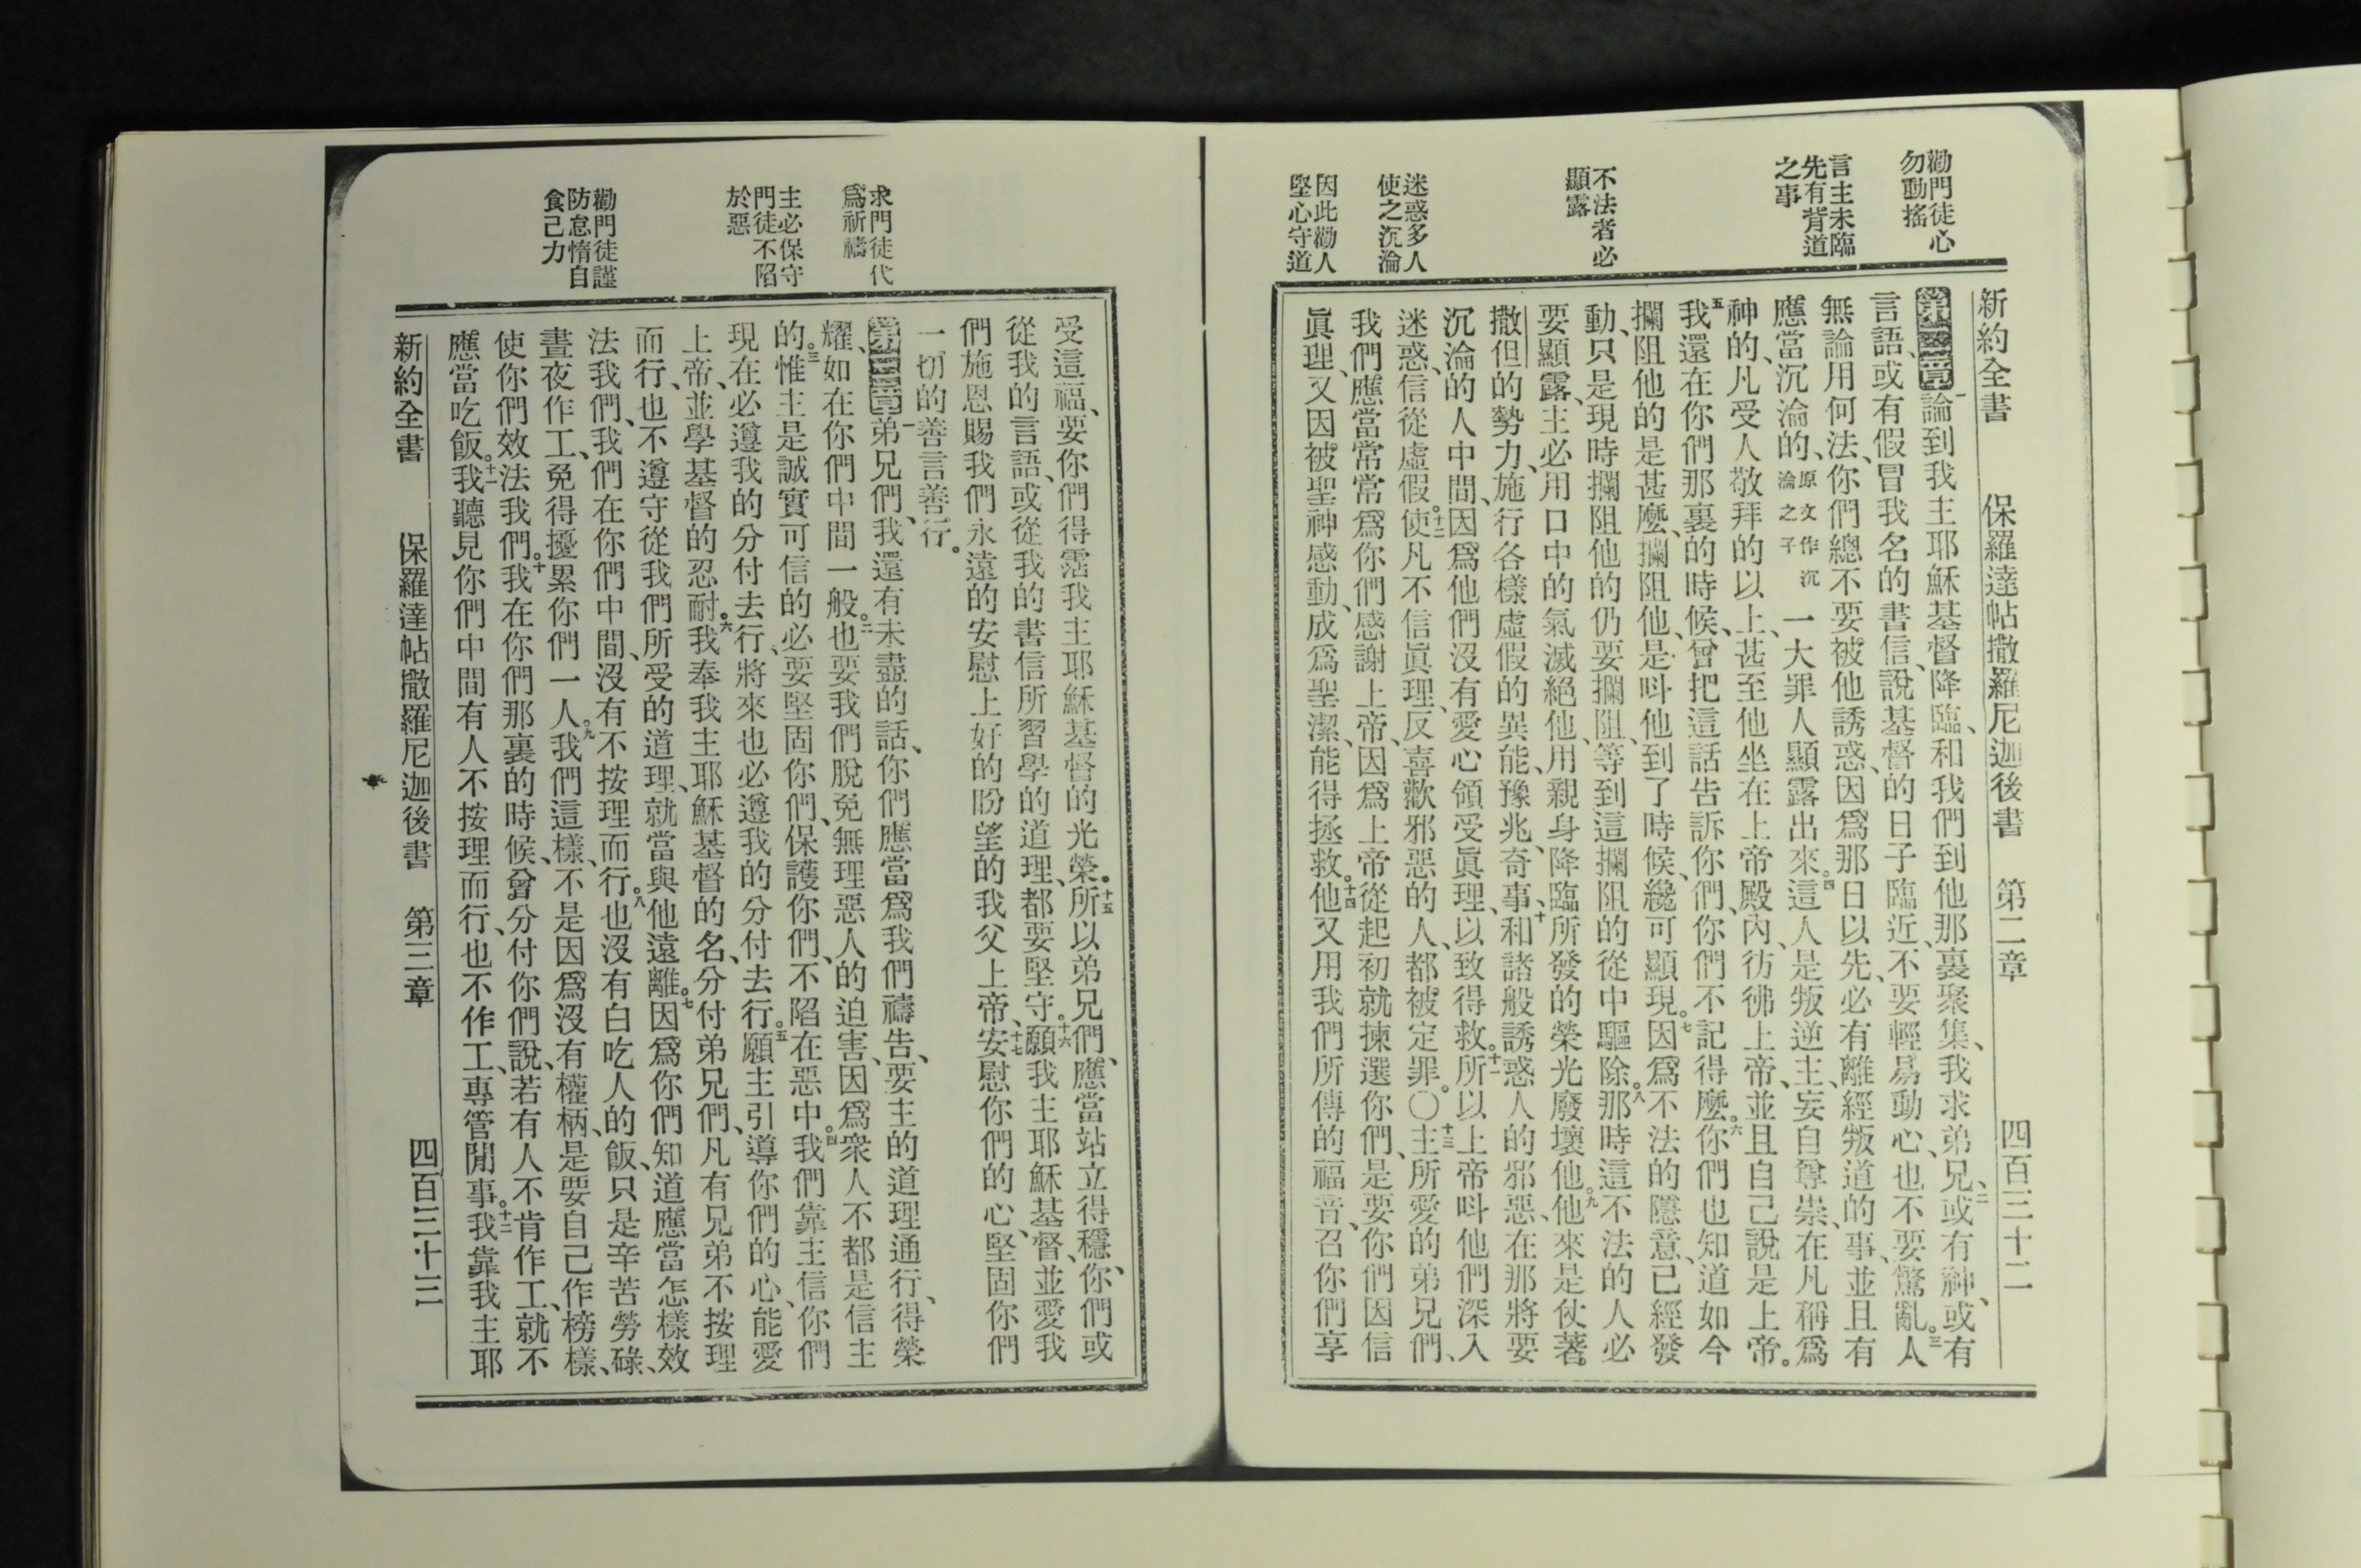 勸門徒心
勿動搖
言主未臨
先有背道
之事
不法者必
顯露
迷惑多人
使之沉淪
因此勸人
堅心守道
新約全書 保羅達帖撒羅尼迦後書 第二章 四百三十二
第二章一論到我主耶穌基督降臨、和我們到他那裏聚集、我求弟兄、二或有神、或有
言語、或有假冒我名的書信、說基督的日子臨近、不要輕易動心、也不要驚亂。三人
無論用何法、你們總不要被他誘惑、因爲那日以先、必有離經叛道的事、並且有
應當沉淪的、原文作沉淪之子一大罪人顯露出來。四這人是叛逆主、妄自尊崇、在凡稱爲
神的、凡受人敬拜的以上、甚至他坐在上帝殿內、彷彿上帝、並且自己說是上帝。
五我還在你們那裏的時候、曾把這話告訴你們、你們不記得麼。六你們也知道如今
攔阻他的是甚麼、攔阻他、是呌他到了時候、纔可顯現。七因爲不法的隱意、已經發
動、只是現時攔阻他的仍要攔阻、等到這攔阻的從中驅除。八那時這不法的人必
要顯露、主必用口中的氣滅絕他、用親身降臨所發的榮光廢壞他。九他來是仗著
撒但的勢力、施行各樣虛假的異能、豫兆、奇事、十和諸般誘惑人的邪惡、在那將要
沉淪的人中間、因爲他們沒有愛心領受眞理、以致得救。十一所以上帝呌他們深入
迷惑、信從虛假。十二使凡不信眞理、反喜歡邪惡的人、都被定罪。〇十三主所愛的弟兄們、
我們應當常常爲你們感謝上帝、因爲上帝從起初就揀選你們、是要你們因信
眞理、又因被聖神感動、成爲聖潔、能得拯救。十四他又用我們所傳的福音、召你們享
求門徒代
爲祈禱
主必保守
門徒不陷
於惡
勸門徒謹
防怠惰自
食己力
受這福、要你們得霑我主耶穌基督的光榮。十五所以弟兄們、應當站立得穩、你們或
從我的言語、或從我的書信所習學的道理、都要堅守。十六願我主耶穌基督、並愛我
們施恩賜我們永遠的安慰上好的盼望的我父上帝、十七安慰你們的心、堅固你們
一切的善言善行。
第三章一弟兄們、我還有未盡的話、你們應當爲我們禱告、要主的道理通行、得榮
耀、如在你們中間一般。二也要我們脫免無理惡人的迫害、因爲衆人不都是信主
的。三惟主是誠實可信的、必要堅固你們、保護你們、不陷在惡中。四我們靠主信你們
現在必遵我的分付去行、將來也必遵我的分付去行。五願主引導你們的心、能愛
上帝、並學基督的忍耐。六我奉我主耶穌基督的名、分付弟兄們、凡有兄弟不按理
而行、也不遵守從我們所受的道理、就當與他遠離。七因爲你們知道應當怎樣效
法我們、我們在你們中間、沒有不按理而行。八也沒有白吃人的飯、只是辛苦勞碌、
晝夜作工、免得擾累你們一人。九我們這樣、不是因爲沒有權柄、是要自己作榜樣、
使你們效法我們。十我在你們那裏的時候、曾分付你們說、若有人不肯作工、就不
應當吃飯。十一我聽見你們中間有人不按理而行、也不作工、專管閒事。十二我靠我主耶
新約全書 保羅達帖撒羅尼迦後書 第三章 四百三十三